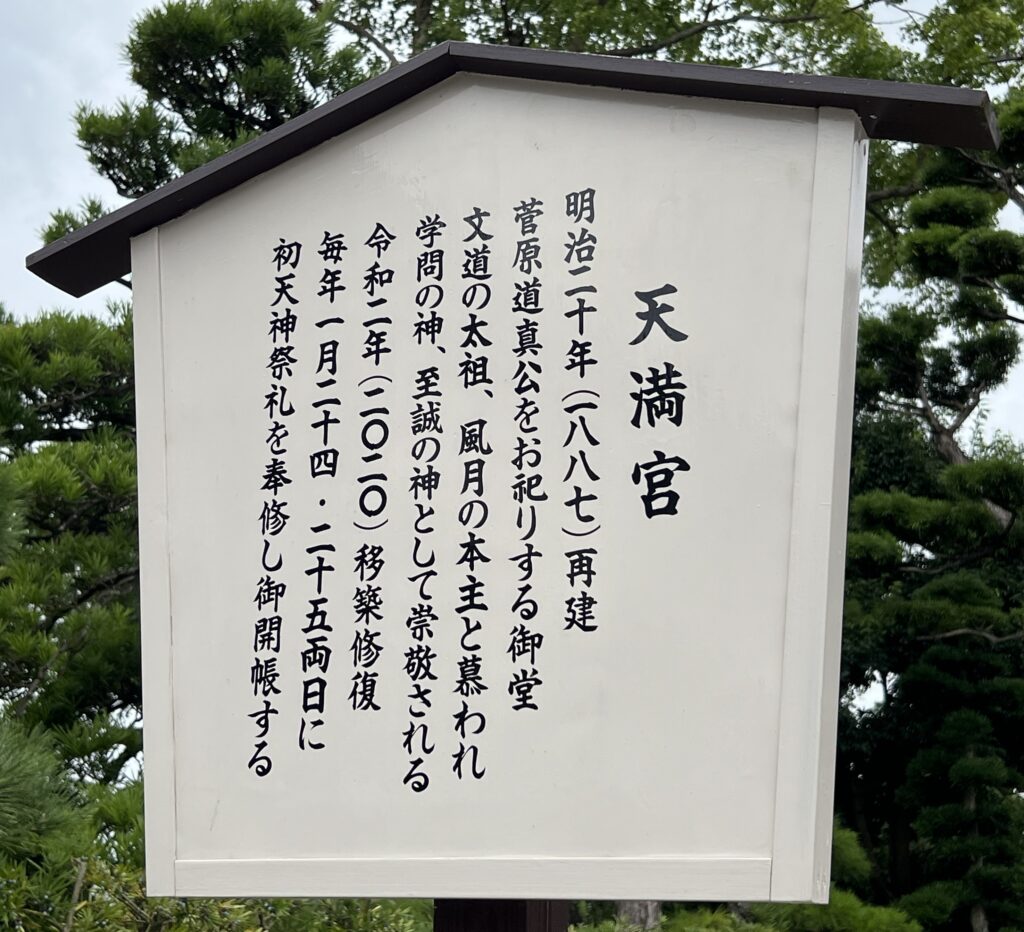 天満宮
明治二十年(一八八七)再建
菅原道真公をお祀りする御堂
文道の太祖、風月の本主と慕われ
学問の神、至誠の神として崇敬される
令和二年(二〇二〇)移築修復
毎年一月二十四・二十五両日に
初天神祭礼を奉修し御開帳する